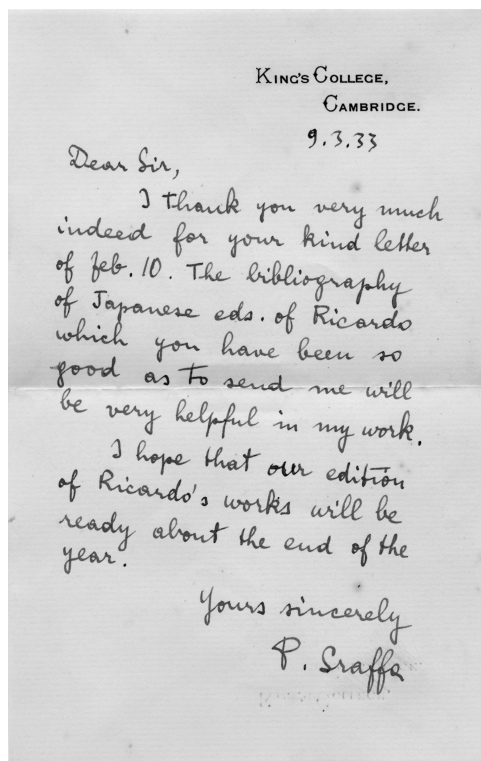 KING'S COLLEGE,
CAMBRIDGE.
9.3.33
Dear Sir,
I thank you very much
indeed for your kind letter
of Feb. 10. The bibliography
of Japanese eds. of Ricardo
which you have been so
good as to send me will
be very helpful in my work.
I hope that our edition
of Ricardo's works will be
ready about the end of the
year.
Yours sincerely
P. Sraffa